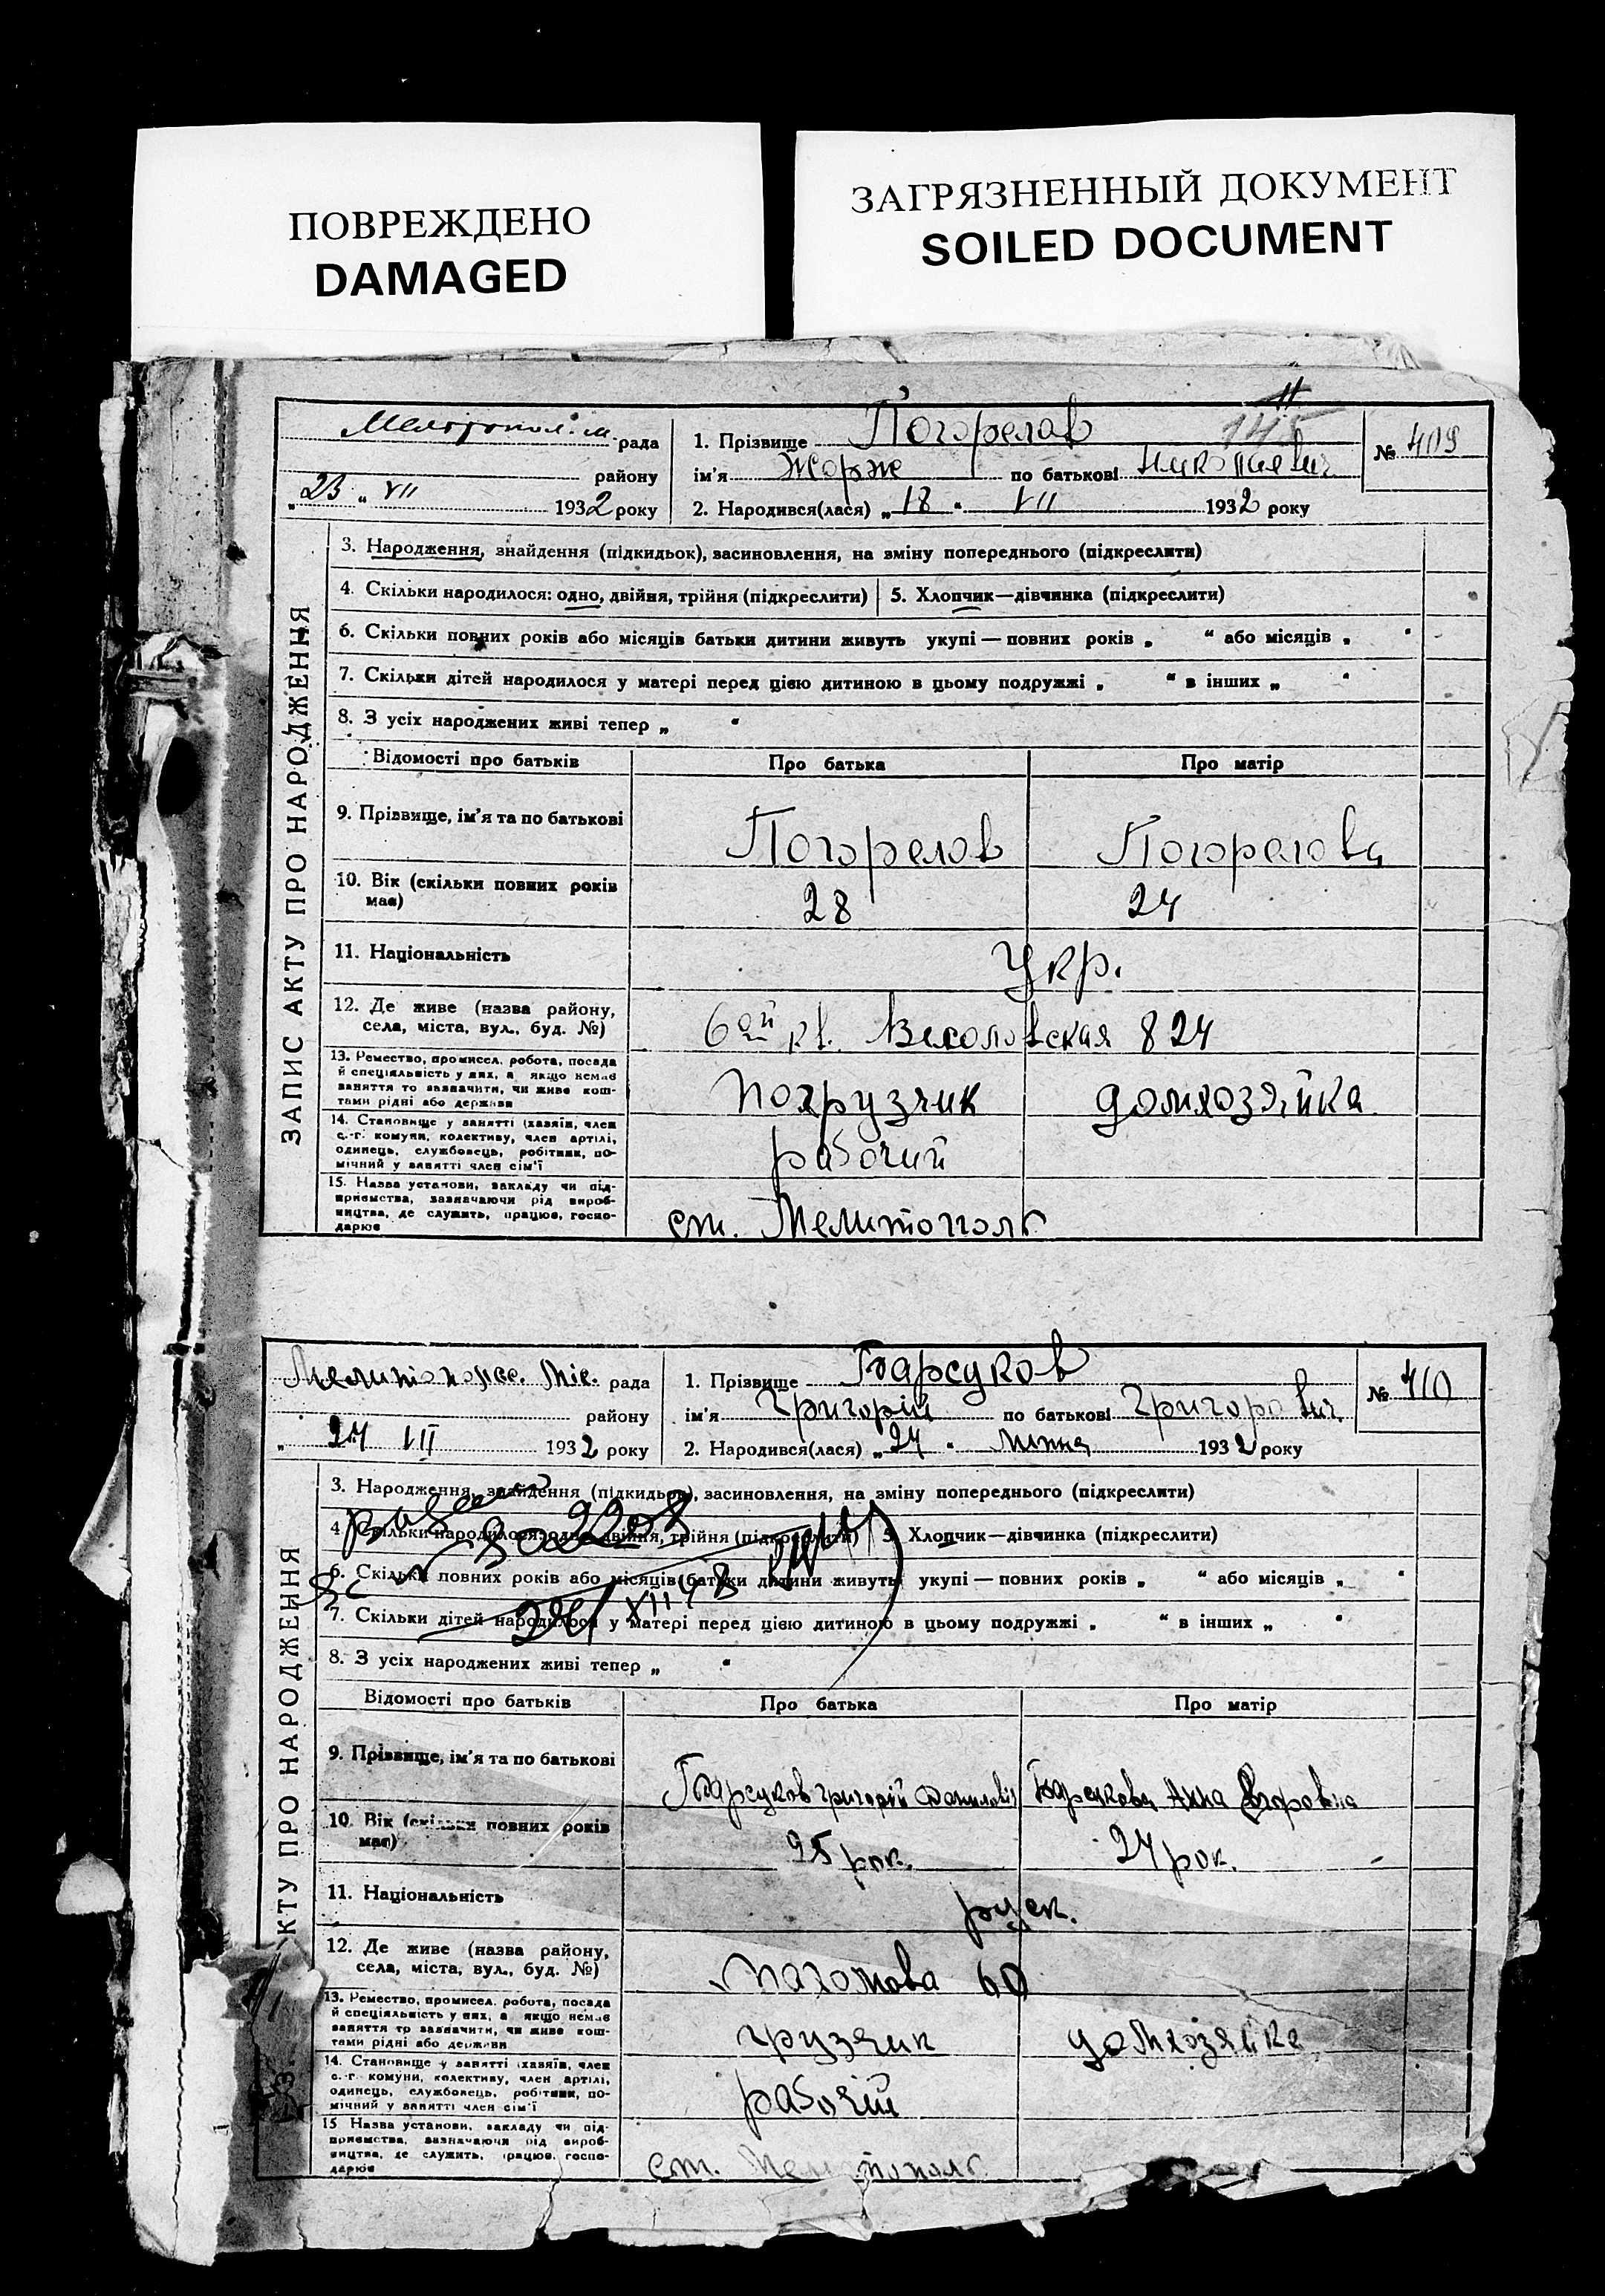 ПОВРЕЖДЕНО
DAMAGED
ЗАГРЯЗНЕННЫЙ ДОКУМЕНТ
SOILED DOCUMENT
ЗАПИС АКТУ ПРО НАРОДЖЕННЯ
Мелітопол. м. рада
району
„23“ VII 1932 року
1. Прізвище Погорелов
ім'я Жорж по батькові Николаевич
2. Народився(лася) „18“ VII 1932 року
№ 409
3. Народження, знайдення (підкидьок), засиновлення, на зміну попереднього (підкреслити)
4. Скільки народилося: одно, двійня, трійня (підкреслити) 5. Хлопчик—дівчинка (підкреслити)
6. Скільки повних років або місяців батьки дитини живуть укупі — повних років „ “ або місяців „ “
7. Скільки дітей народилося у матері перед цією дитиною в цьому подружжі „ “ в інших „ “
8. З усіх народжених живі тепер „ “
Відомості про батьків Про батька Про матір
9. Прізвище, ім'я та по батькові Погорелов Погорелова
10. Вік (скільки повних років має) 28 24
11. Національність Укр.
12. Де живе (назва району, села, міста, вул., буд. №) 6ой кв. Веселовская 824
13. Ремество, промисел, робота, посада
й спеціяльність у них, а якщо немає
заняття то зазначити, чи живе кош-
тами рідні або держави
погрузчик домхозяйка
14. Становище у занятті (хазяїн, член
с.-г. комуни, колективу, член артілі,
одинець, службовець, робітник, по-
мічний у занятті член сім'ї
рабочий
15. Назва установи, закладу чи під-
приємства, зазначаючи рід вироб-
ництва, де служить, працює, госпо-
дарює
ст. Мелитополь
КТУ ПРО НАРОДЖЕННЯ
Мелитопольс. Міс. рада
району
„24 VII 1932 року
1. Прізвище Барсуков
ім'я Григорій по батькові Григорович
2. Народився(лася) „24“ липня 1932 року
№ 410
3. Народження, знайдення (підкидьок), засиновлення, на зміну попереднього (підкреслити)
4. Скільки народилося: одно, двійня, трійня (підкреслити) 5. Хлопчик—дівчинка (підкреслити)
6. Скільки повних років або місяців батьки дитини живуть укупі — повних років „ “ або місяців „ “
7. Скільки дітей народилося у матері перед цією дитиною в цьому подружжі „ “ в інших „ “
8. З усіх народжених живі тепер „ “
Відомості про батьків Про батька Про матір
9. Прізвище, ім'я та по батькові Барсуков Григорій Данилович Барсукова Анна Егоровна
10. Вік (скільки повних років має) 25 рок. 24 рок.
11. Національність руск.
12. Де живе (назва району, села, міста, вул., буд. №) 60
13. Ремество, промисел, робота, посада
й спеціяльність у них, а якщо немає
заняття то зазначити, чи живе кош-
тами рідні або держави
грузчик домхозяйка
14. Становище у занятті (хазяїн, член
с.-г. комуни, колективу, член артілі,
одинець, службовець, робітник, по-
мічний у занятті член сім'ї
рабочій
15 Назва установи, закладу чи під-
приємства, зазначаючи рід вироб-
ництва, де служить, працює, госпо-
дарює
ст. Мелитополь